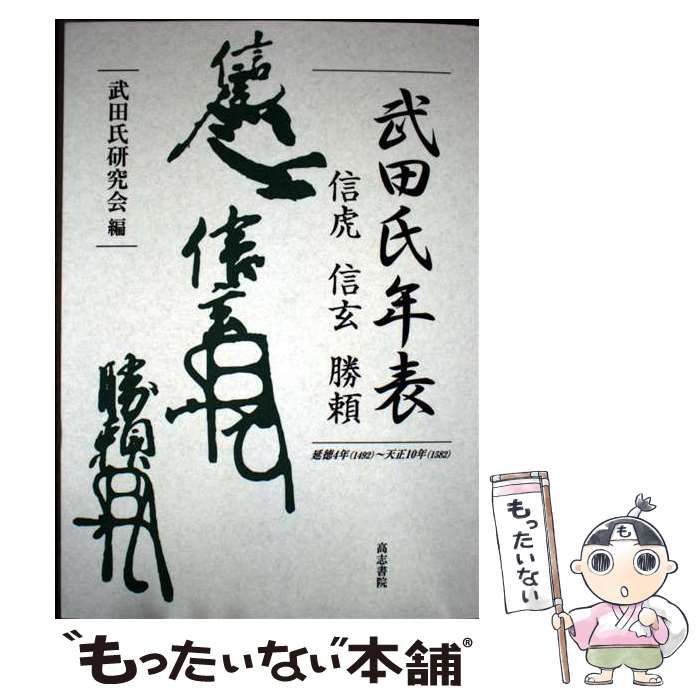 武田氏年表
信虎 信玄 勝頼
延徳4年(1492)～天正10年(1582)
武田氏研究会 編
信玄
勝頼
高志書院
もったいない
も
“もったいない本舗”®